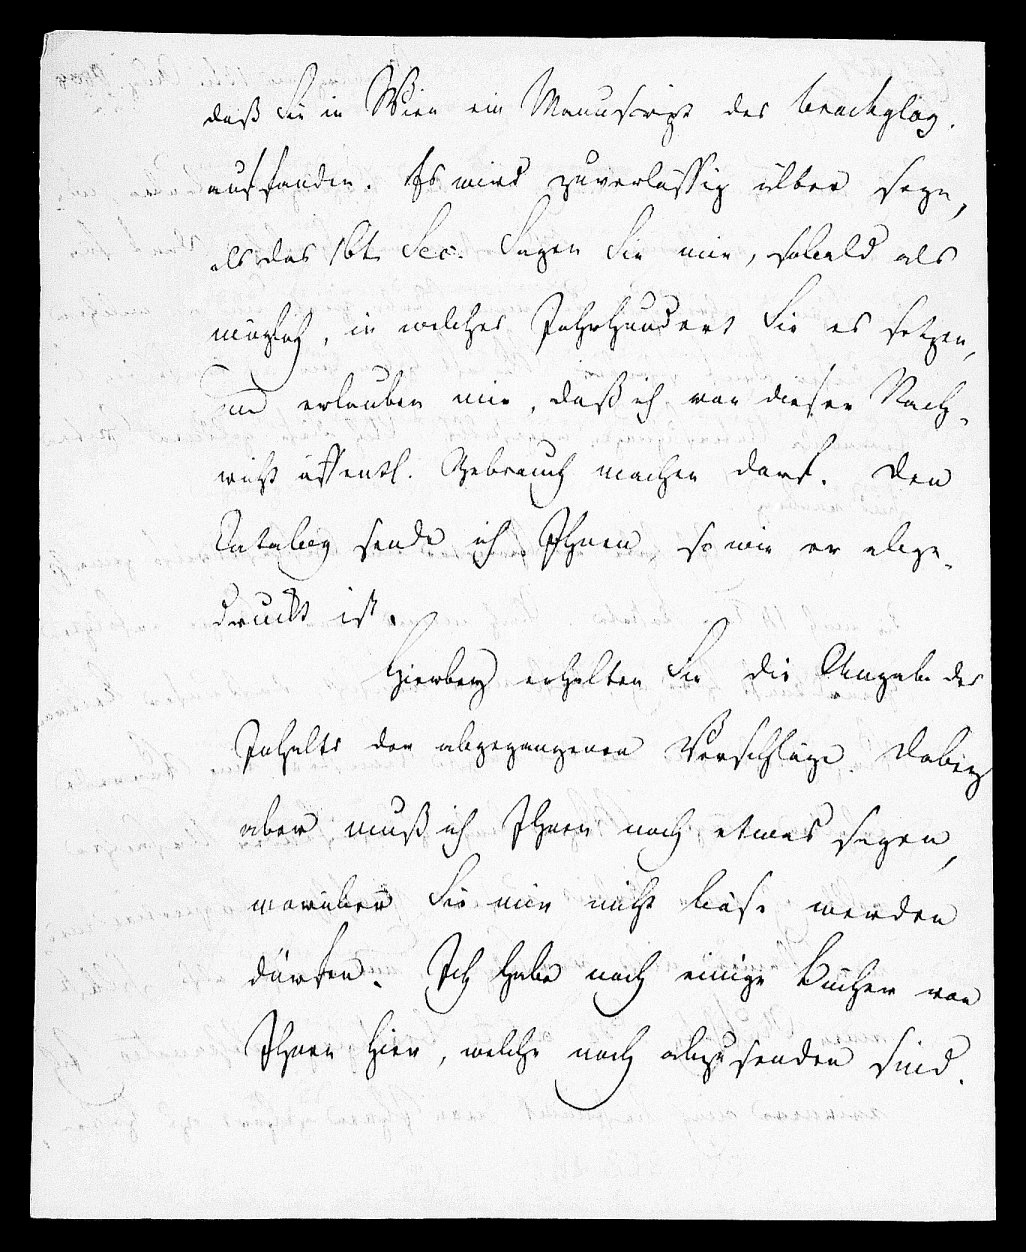 daß Sie in Wien ein Manuscript des Brachylog.
auffanden. Es wird zuverlässig älter seyn,
als das 16te Sec. Sagen Sie mir, sobald als
möglich, in welches Jahrhundert Sie es setzen,
und erlauben mir, daß ich von dieser Nach-
richt öffentl. Gebrauch machen darf. Den
Catalog sende ich Ihnen so wie er abge-
druckt ist.
Hierbey erhalten Sie die Angabe des
Inhalts der abgegangenen Verschläge. Dabey
aber muß ich Ihnen noch etwas sagen,
worüber Sie mir nicht böse werden
dürfen. Ich habe noch einige Bücher von
Ihnen hier, welche noch abzusenden sind.